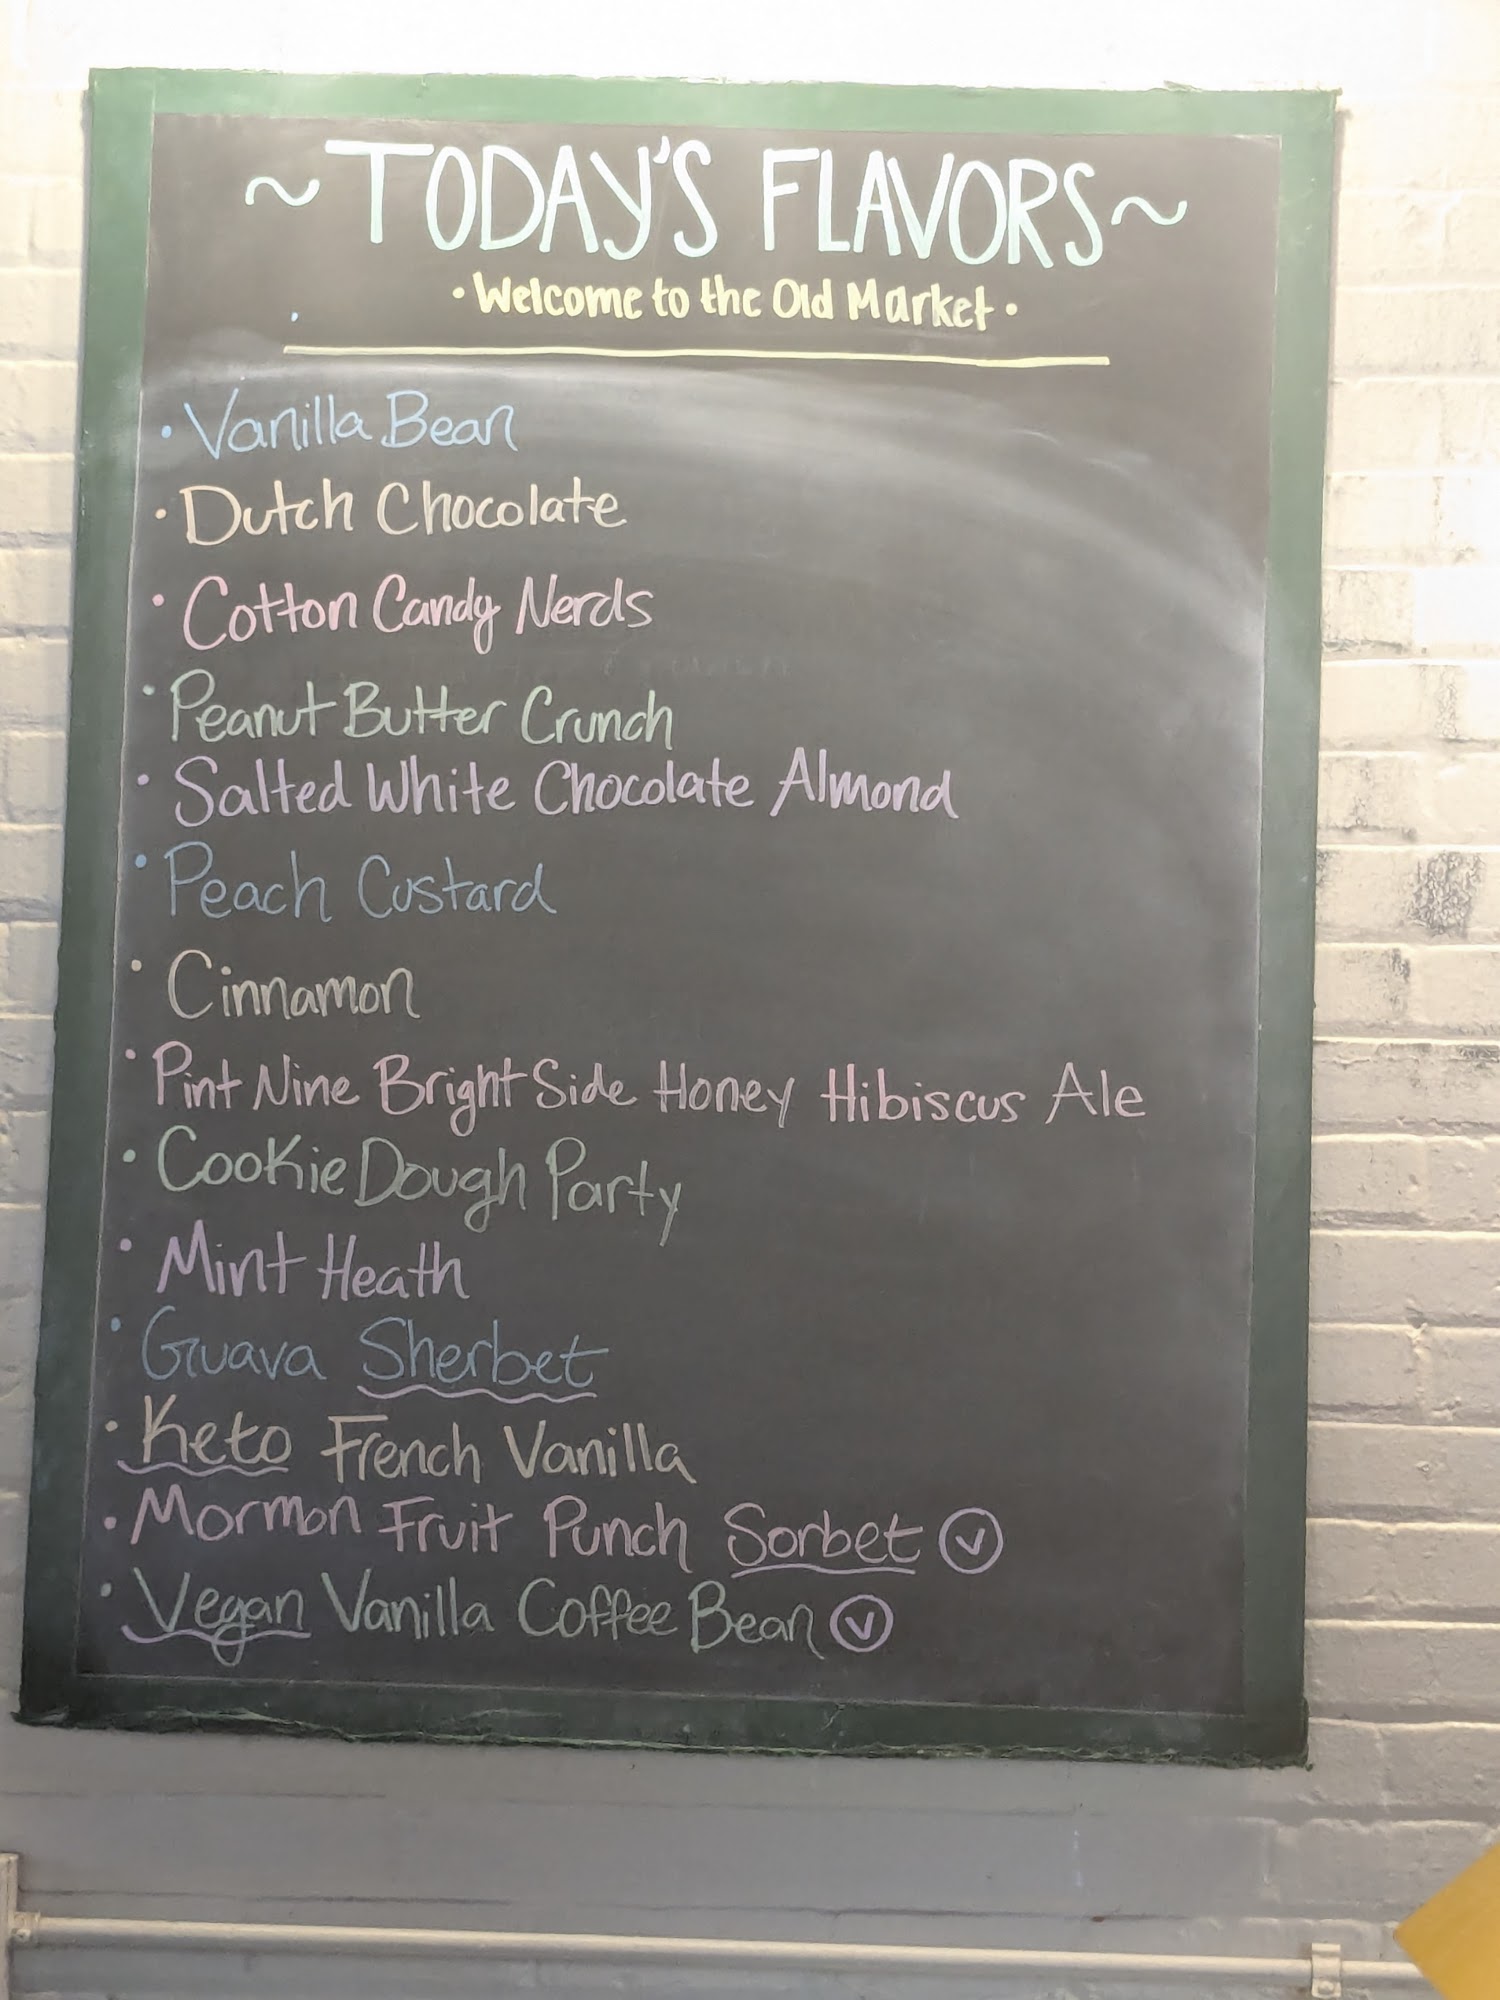 ~ TODAY'S FLAVORS ~
• Welcome to the Old Market •
• Vanilla Bean
• Dutch Chocolate
• Cotton Candy Nerds
• Peanut Butter Crunch
• Salted White Chocolate Almond
• Peach Custard
• Cinnamon
• Pint Nine Bright Side Honey Hibiscus Ale
• Cookie Dough Party
• Mint Heath
• Guava Sherbet
• Keto French Vanilla
• Mormon Fruit Punch Sorbet Ⓥ
• Vegan Vanilla Coffee Bean Ⓥ